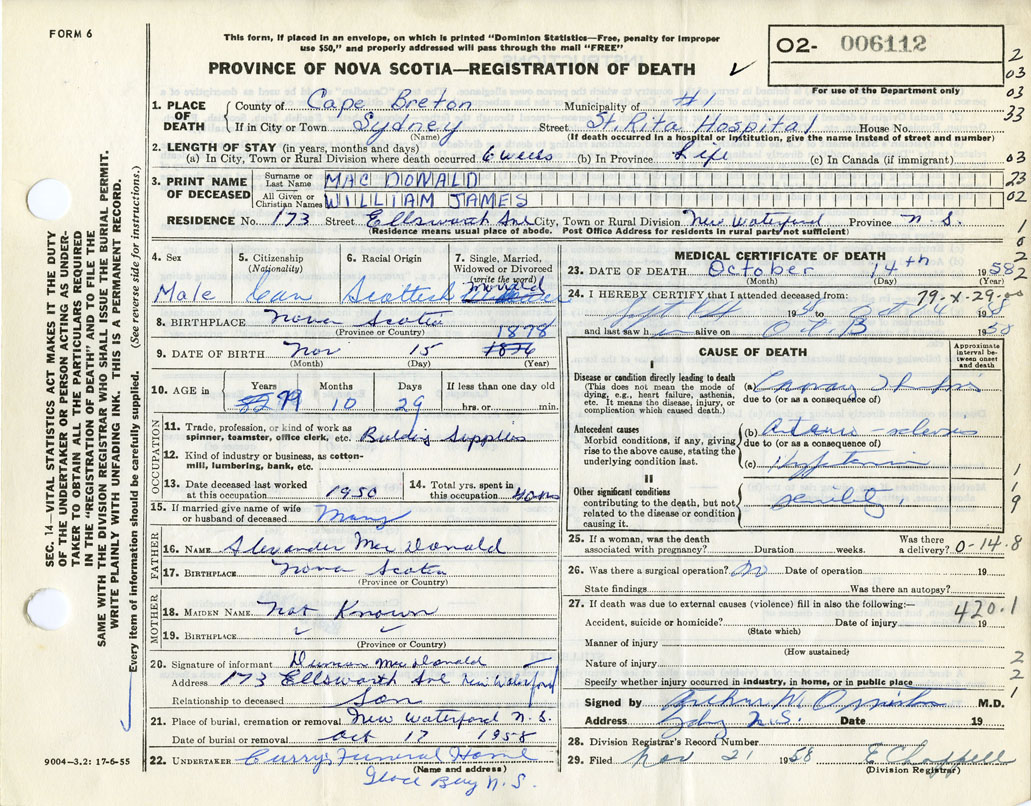 FORM 6
This form, if placed in an envelope, on which is printed "Dominion Statistics—Free, penalty for improper
use $50," and properly addressed will pass through the mail "FREE"
02- 006112
For use of the Department only
PROVINCE OF NOVA SCOTIA—REGISTRATION OF DEATH
1. PLACE OF DEATH County of Cape Breton Municipality of #1
If in City or Town Sydney Street St. Rita Hospital House No.
(Name) (If death occurred in a hospital or institution, give the name instead of street and number)
2. LENGTH OF STAY (in years, months and days)
(a) In City, Town or Rural Division where death occurred 6 weeks (b) In Province Life (c) In Canada (if immigrant)
3. PRINT NAME OF DECEASED Surname or Last Name MAC DONALD
All Given or Christian Names WILLIAM JAMES
RESIDENCE No. 173 Street Ellsworth Ave City, Town or Rural Division New Waterford Province N.S.
(Residence means usual place of abode. Post Office Address for residents in rural parts not sufficient)
4. Sex Male
5. Citizenship (Nationality) Can
6. Racial Origin Scottish
7. Single, Married, Widowed or Divorced (write the word) married
8. BIRTHPLACE Nova Scotia
(Province or Country)
9. DATE OF BIRTH Nov 15 1878 1876
(Month) (Day) (Year)
10. AGE in Years 79 Months 10 Days 29 If less than one day old hrs. or min.
OCCUPATION
11. Trade, profession, or kind of work as spinner, teamster, office clerk, etc. Building Supplies
12. Kind of industry or business, as cotton-mill, lumbering, bank, etc.
13. Date deceased last worked at this occupation 1950
14. Total yrs. spent in this occupation 40 yrs
15. If married give name of wife or husband of deceased Mary
FATHER
16. NAME Alexander Mac Donald
17. BIRTHPLACE Nova Scotia
(Province or Country)
MOTHER
18. MAIDEN NAME Not Known
19. BIRTHPLACE
(Province or Country)
20. Signature of informant Duncan Mac Donald
Address 173 Ellsworth Ave New Waterford
Relationship to deceased Son
21. Place of burial, cremation or removal New Waterford N.S.
Date of burial or removal Oct 17 1958
22. UNDERTAKER Curry's Funeral Home
(Name and address)
Glace Bay N.S.
MEDICAL CERTIFICATE OF DEATH
23. DATE OF DEATH October 14th 1958
(Month) (Day) (Year)
79-X-29-
24. I HEREBY CERTIFY that I attended deceased from:
19 Oct 14 19
and last saw h im alive on Oct 13 1958
CAUSE OF DEATH
Approximate interval between onset and death
I
Disease or condition directly leading to death
(This does not mean the mode of dying, e.g., heart failure, asthenia, etc. It means the disease, injury, or complication which caused death.)
(a)
due to (or as a consequence of)
Antecedent causes
Morbid conditions, if any, giving rise to the above cause, stating the underlying condition last.
(b) Arterio-sclerosis
due to (or as a consequence of)
(c) Hypertension
II
Other significant conditions
contributing to the death, but not related to the disease or condition causing it.
senility
25. If a woman, was the death associated with pregnancy? Duration weeks. Was there a delivery? 0-14.8
26. Was there a surgical operation? No Date of operation 19
State findings Was there an autopsy?
27. If death was due to external causes (violence) fill in also the following:— 420.1
Accident, suicide or homicide? Date of injury 19
(State which)
Manner of injury
(How sustained)
Nature of injury
Specify whether injury occurred in industry, in home, or in public place
Signed by Arthur W. M.D.
Address Sydney N.S. Date 19
28. Division Registrar's Record Number
29. Filed Nov 21 1958 E Chappell
(Division Registrar)
2
03
03
33
03
23
02
1
0
2
2
1
1
9
2
2
1
SEC. 14—VITAL STATISTICS ACT MAKES IT THE DUTY
OF THE UNDERTAKER OR PERSON ACTING AS UNDER-
TAKER TO OBTAIN ALL THE PARTICULARS REQUIRED
IN THE "REGISTRATION OF DEATH" AND TO FILE THE
SAME WITH THE DIVISION REGISTRAR WHO SHALL ISSUE THE BURIAL PERMIT.
WRITE PLAINLY WITH UNFADING INK. THIS IS A PERMANENT RECORD.
Every item of information should be carefully supplied. (See reverse side for instructions.)
9004—3.2: 17-6-55